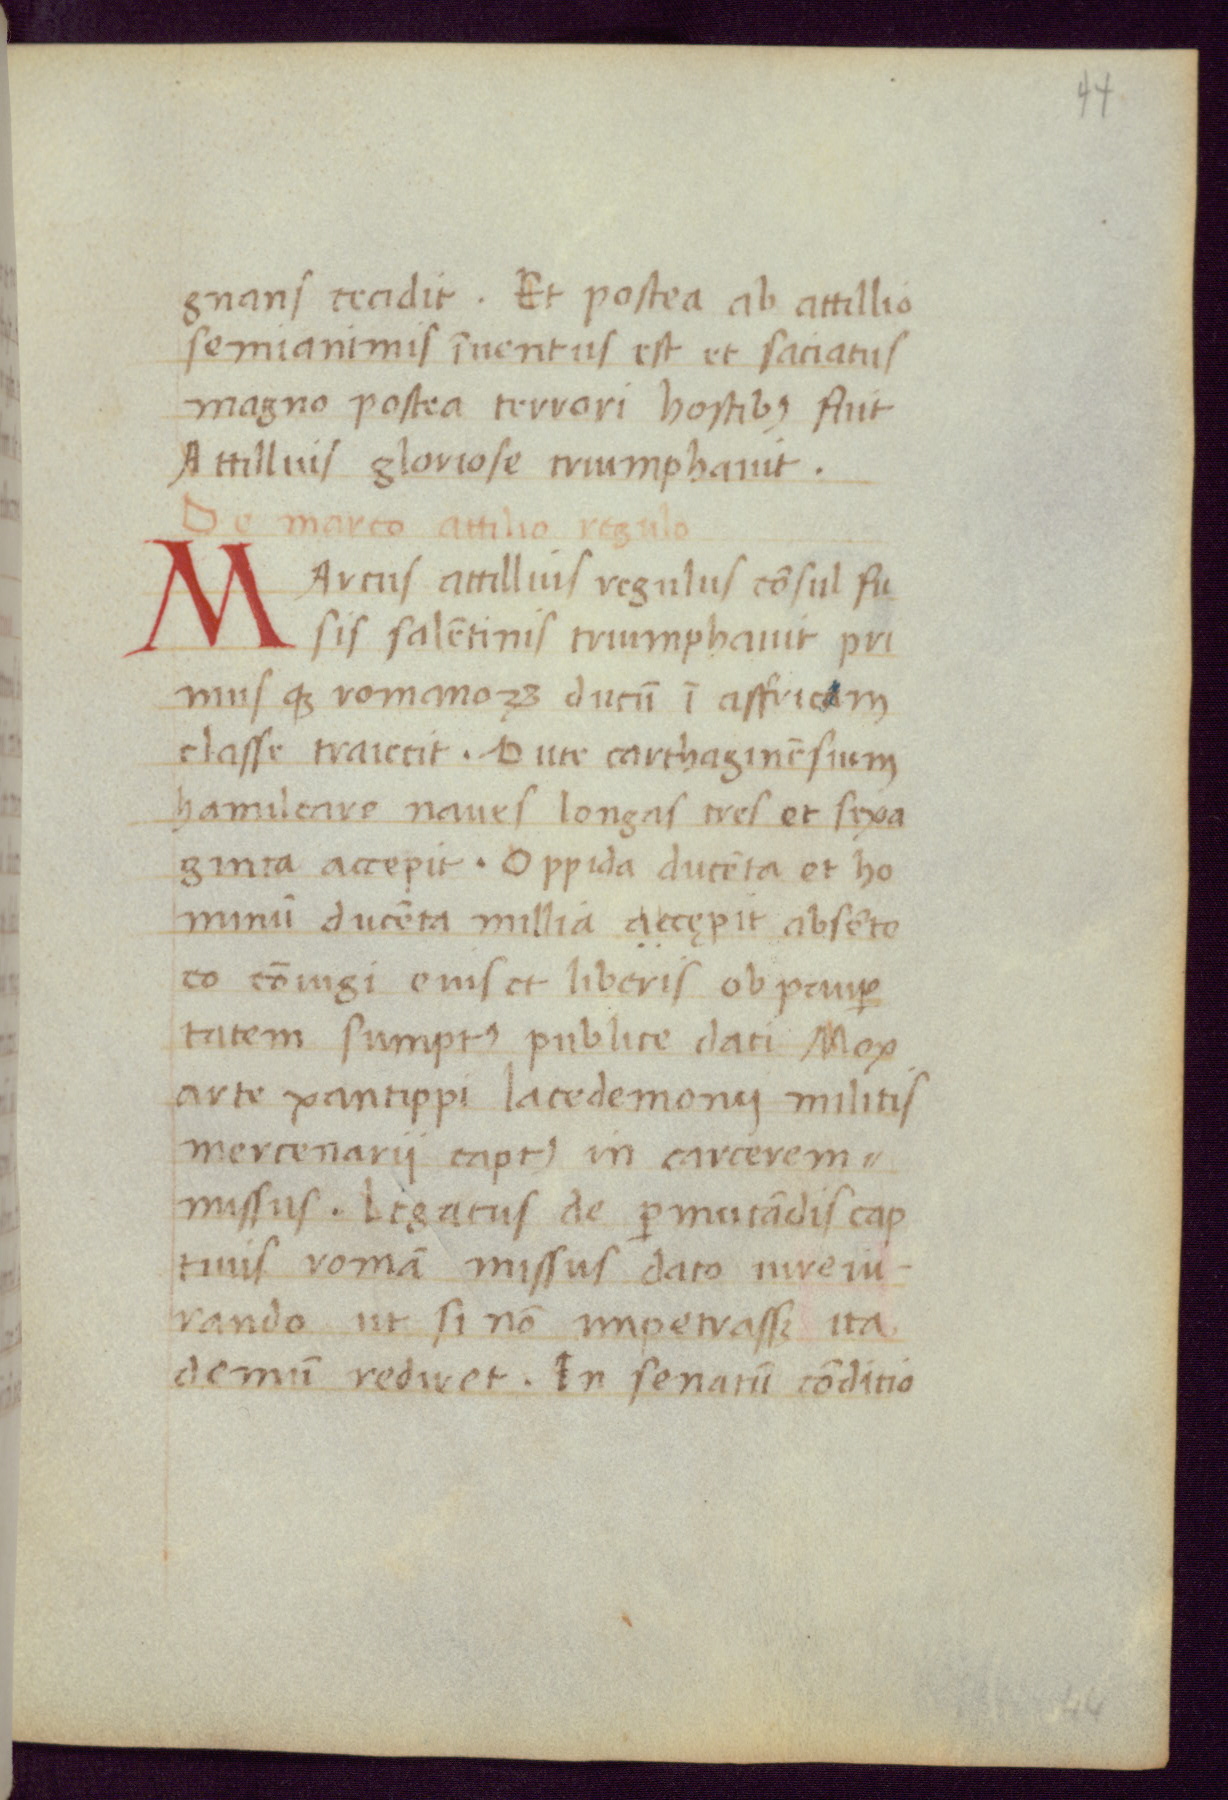 44
gnans cecidit . Et postea ab attillio
semianimis īuentus est et saciatus
magno postea terrori hostibꝫ fuit
Attilluis gloriose triumphauit .
De marco attilio regulo
MArcus attilluis regulus cōsul fu
sis salētinis triumphauit pri
mus qꝫ romanoꝝ ducū ī affricam
classe traiecit . Duce carthaginēsium
hamilcare naues longas tres et sexa
ginta accepit . Oppida ducēta et ho
minū ducēta millia accępit absēte
eo cōiugi eius et liberis ob pauꝑ
tatem sumptꝰ publice dati Mox
arte xantippi lacedemonij militis
mercenarij captꝰ in carcerem〃
missus . Legatus de ꝑmutādis cap
tiuis romā missus dato iureiu-
rando ut si nō impetrassꝫ ita
demū rediret . In senatū cōditio
44